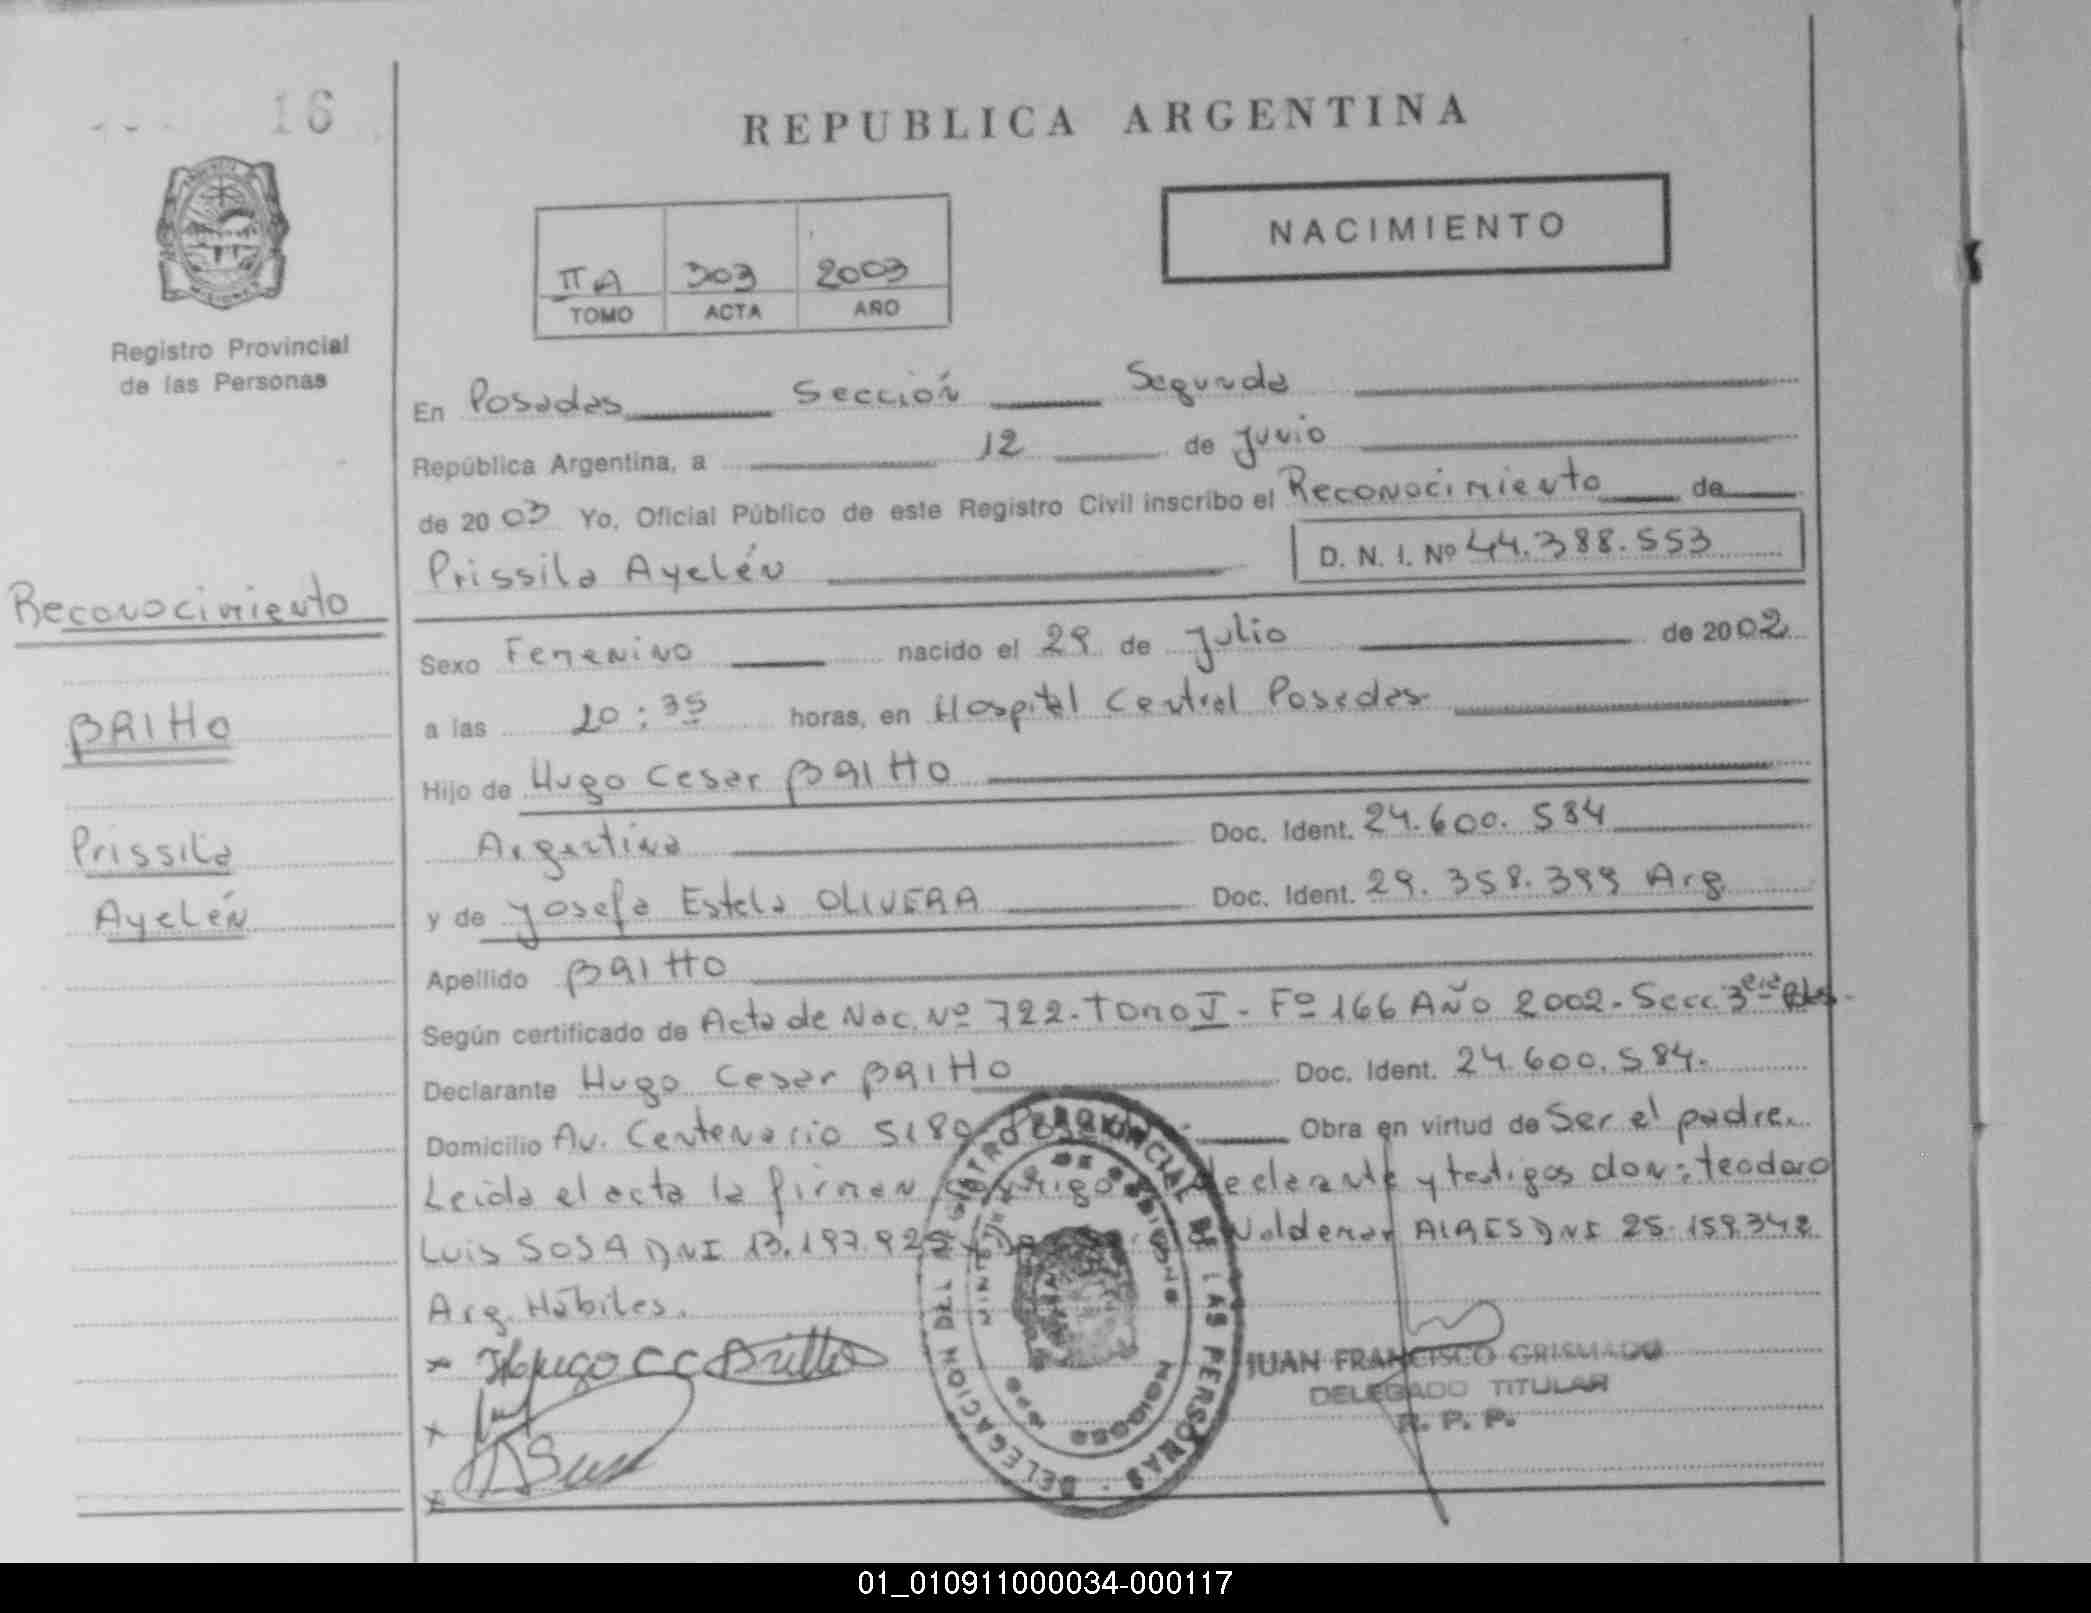 16
REPUBLICA ARGENTINA
NACIMIENTO
IIA 303 2003
TOMO ACTA AÑO
Registro Provincial
de las Personas
En Posadas Sección Segunda
República Argentina, a 12 de Junio
de 2003 Yo, Oficial Público de este Registro Civil inscribo el Reconocimiento de
Prissila Ayelén D. N. I. Nº 44.388.553
Reconocimiento
Sexo Femenino nacido el 29 de Julio de 2002
BRITTO
a las 20:35 horas, en Hospital Central Posadas
Hijo de Hugo Cesar BRITTO
Prissila
Argentina Doc. Ident. 24.600.584
Ayelén
y de Josefa Estela OLIVERA Doc. Ident. 29.358.399 Arg
Apellido BRITTO
Según certificado de Acta de Nac. Nº 722. Tomo I - Fº 166 Año 2002 - Secc. 3era
Declarante Hugo Cesar BRITTO Doc. Ident. 24.600.584.
Domicilio Av. Centenario 5180 Obra en virtud de Ser el padre.
Leída el acta la firman declarante y testigos don: teodoro
Luis SOSA DNI 13.197.92 Valdemar AIRES DNI 25.159.342
Arg. Hábiles.
DELEGACION DEL REGISTRO PROVINCIAL DE LAS PERSONAS
JUAN FRANCISCO GRISMADO
DELEGADO TITULAR
R. P. P.
01_010911000034-000117